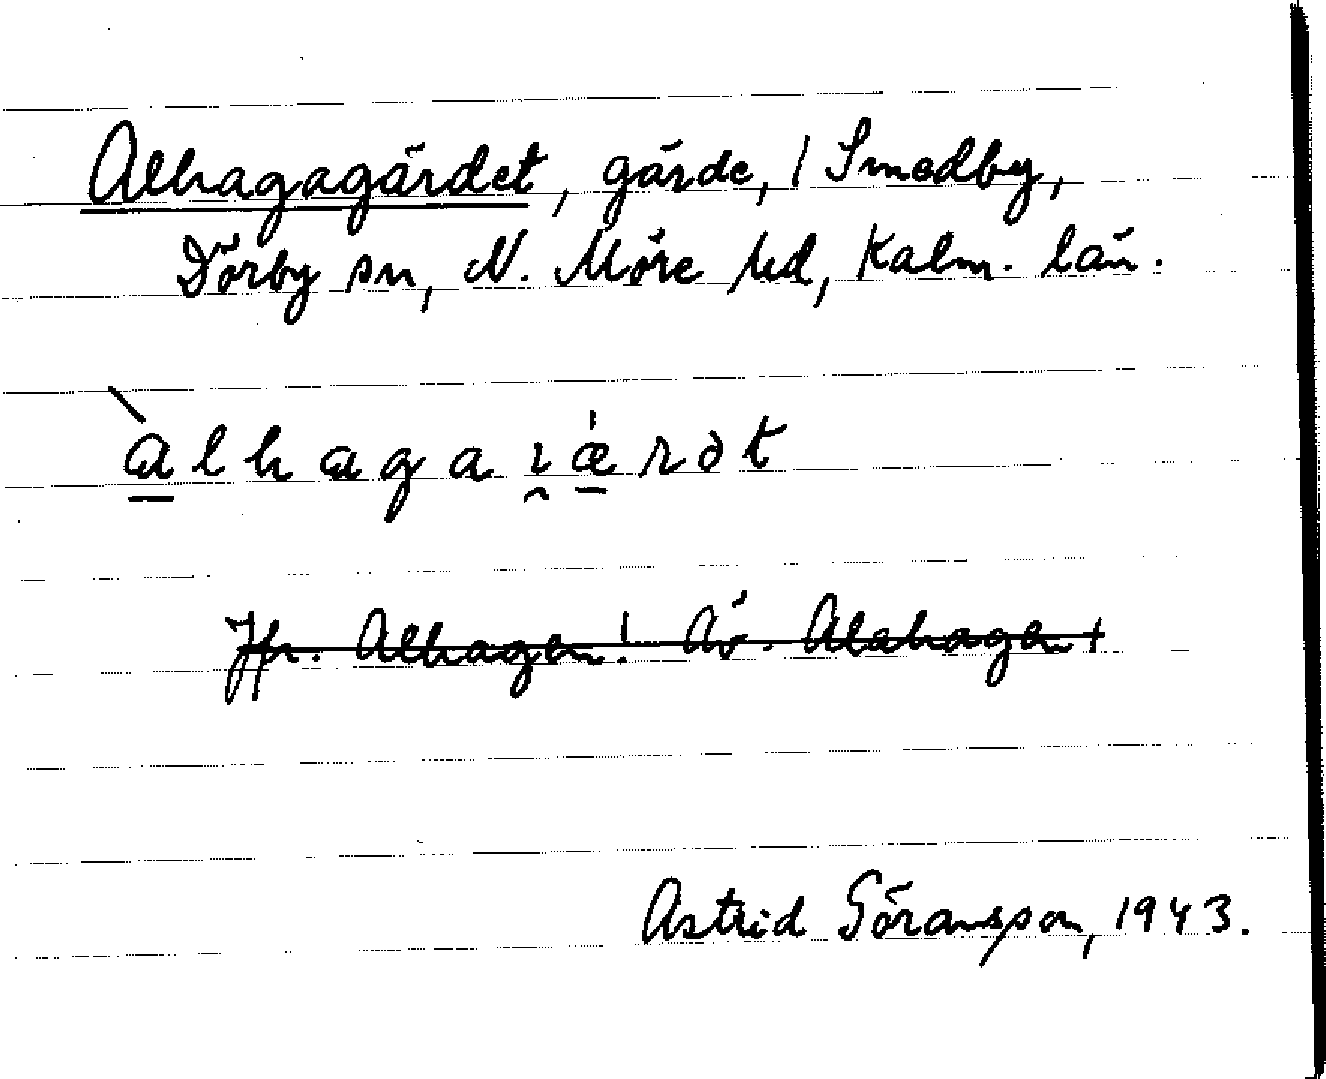 Alhagagärdet, gärde, / Smedby,
Dörby sn, N. Möre hd, Kalm. län.
àlhagaı̯æ̍rdət
Jfr. Alhagen! Äv. Alahagen +
Astrid Göransson, 1943.